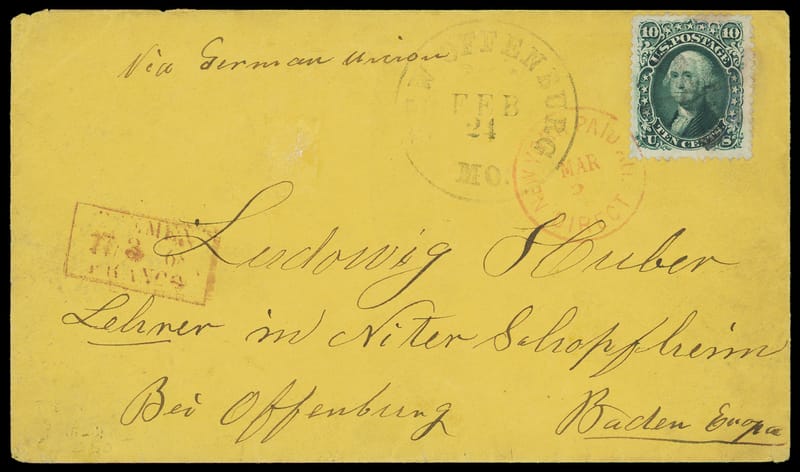 Via German union
10 10
U.S. POSTAGE
TEN CENTS
U S
FFENBURG
FEB
24
MO.
NEW YORK PAID
MAR
DIRECT
Ludowig Huber
Lehrer in Niter Schopfheim
Bei Offenburg
Baden Europa
3
FRANCO